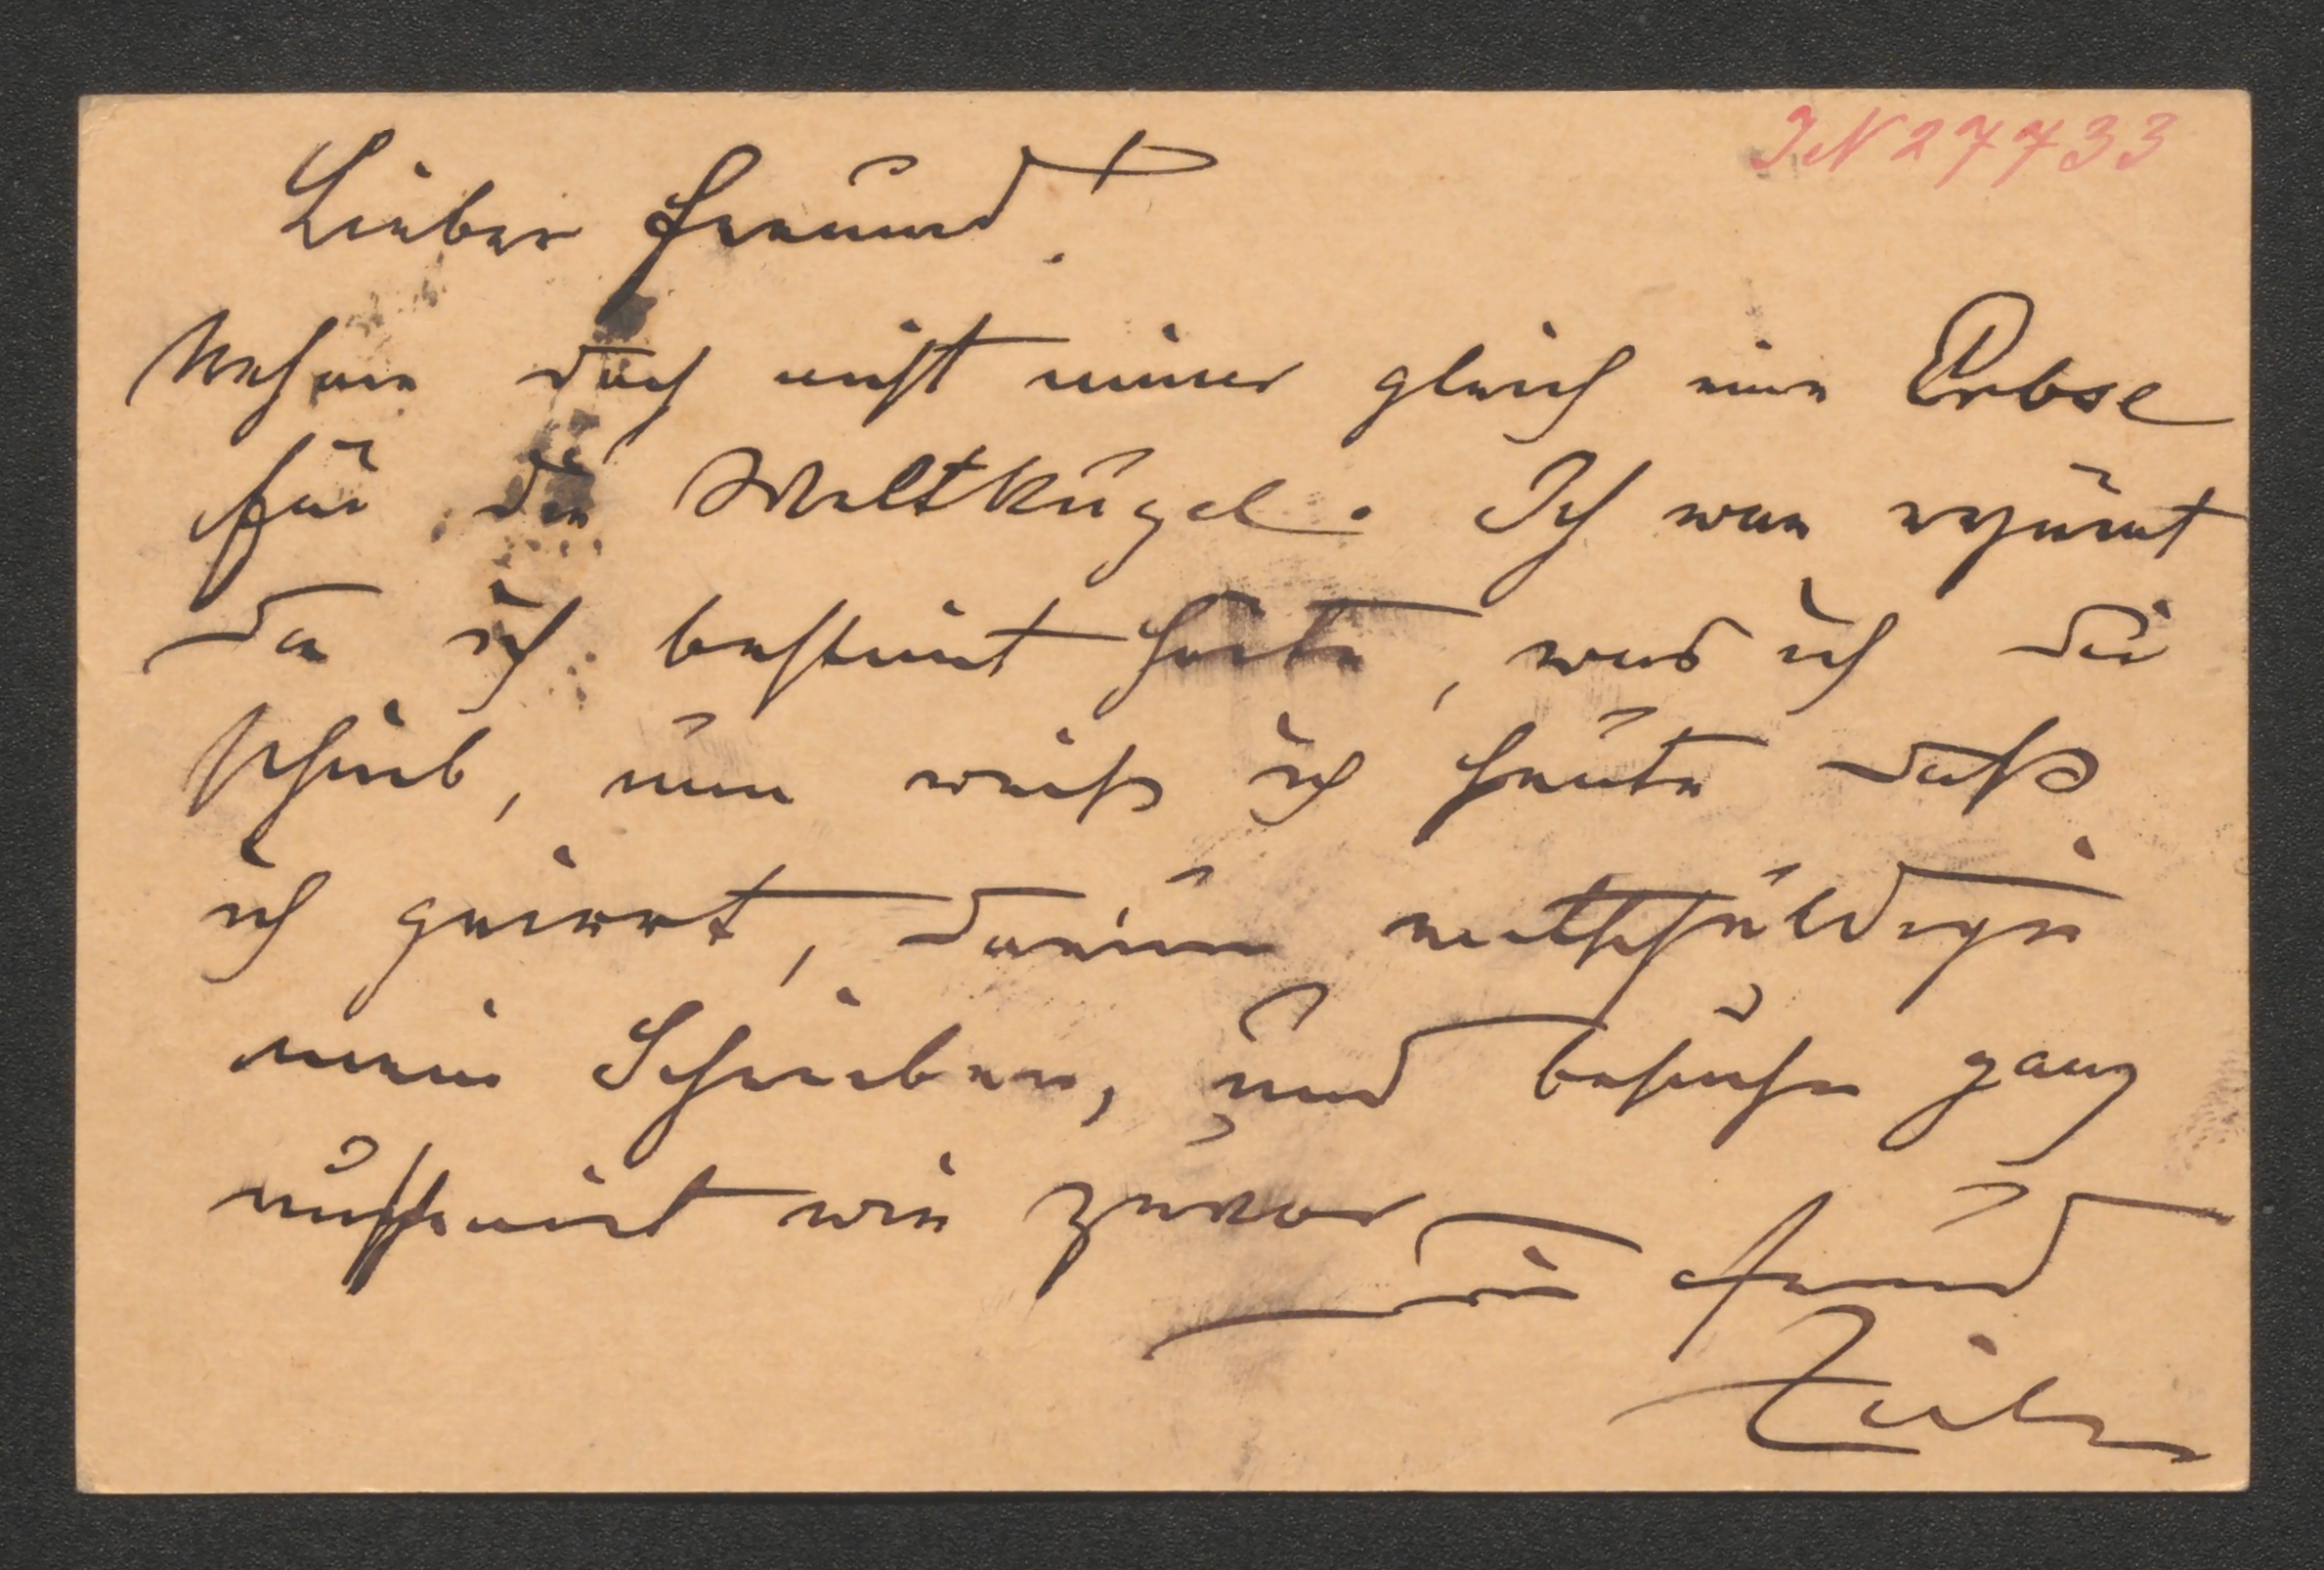 IN 27733
Lieber Freund!
Nehme doch nicht immer gleich eine Erbse
für die Weltkugel. Ich war erzürnt
da ich bestimt hörte, was ich Dir
schrieb, nun weiß ich heute daß
ich geirrt, darum entschuldige
mein Schreiben, und besuche ganz
wie zuvor
Dein Freund